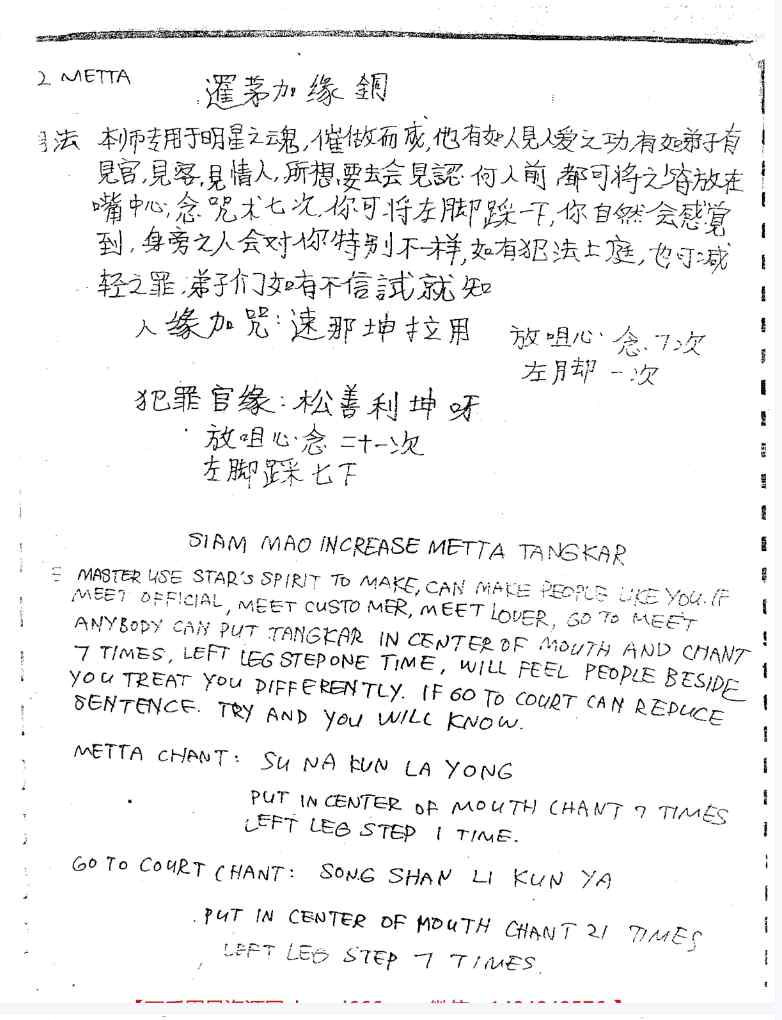 2 METTA
暹茅加缘銅
法 本师专用于明星之魂,催做而成,他有如人見人爱之功,有如弟子有
見官,見客,見情人,所想要去会見認何人前,都可将之皆放在
嘴中心,念咒术七次,你可将左脚踩一下,你自然会感覚
到,身旁之人会对你特别不一样,如有犯法上庭,也可减
轻之罪,弟子们如有不信試就知
人缘加咒:速那坤拉用
放咀心念7次
左月却一次
犯罪官缘:松善利坤呀
放咀心念二十一次
左脚踩七下
SIAM MAO INCREASE METTA TANGKAR
MASTER USE STAR'S SPIRIT TO MAKE, CAN MAKE PEOPLE LIKE YOU. IF
MEET OFFICIAL, MEET CUSTOMER, MEET LOVER, GO TO MEET
ANYBODY CAN PUT TANGKAR IN CENTER OF MOUTH AND CHANT
7 TIMES, LEFT LEG STEP ONE TIME, WILL FEEL PEOPLE BESIDE
YOU TREAT YOU DIFFERENTLY. IF GO TO COURT CAN REDUCE
SENTENCE. TRY AND YOU WILL KNOW.
METTA CHANT: SU NA KUN LA YONG
PUT IN CENTER OF MOUTH CHANT 7 TIMES
LEFT LEG STEP 1 TIME.
GO TO COURT CHANT: SONG SHAN LI KUN YA
PUT IN CENTER OF MOUTH CHANT 21 TIMES
LEFT LEG STEP 7 TIMES.